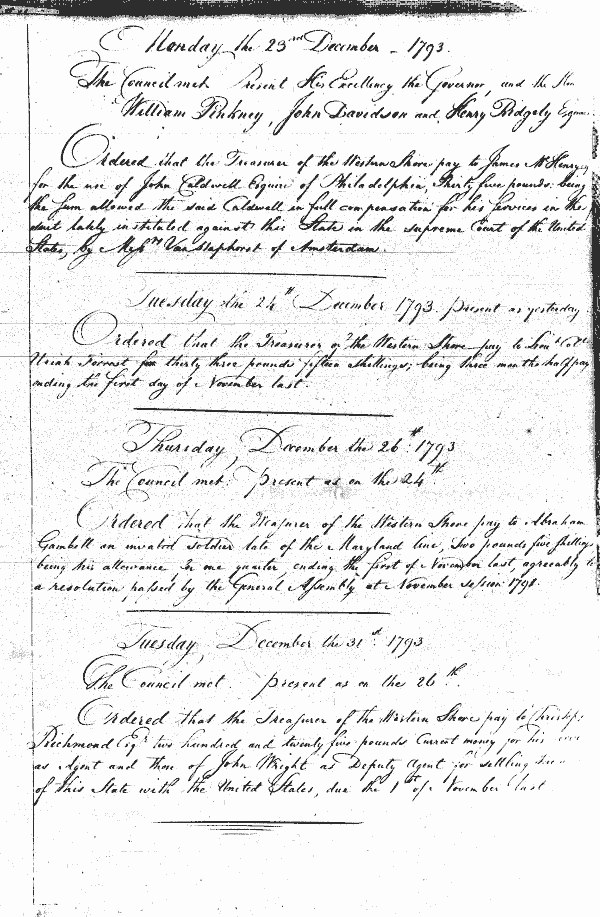 Monday the 23rd December - 1793.
The Council met Present His Excellency the Governor, and the Hon
William Pinkney, John Davidson and Henry Ridgely Esqrs
Ordered that the Treasurer of the Western Shore pay to James McHenry
for the use of John Caldwell Esquire of Philadelphia, Thirty five pounds: being
the sum allowed the said Caldwell in full compensation for his services in the
suit lately instituted against this State in the supreme Court of the United
States, by Messrs Van Staphorst of Amsterdam.
Tuesday the 24th December 1793. present as yesterday.
Ordered that the Treasurer of the Western Shore pay to
Uriah Forrest thirty three pounds fifteen shillings; being three months half pay
ending the first day of November last.
Thursday, December the 26th 1793
The Council met. present as on the 24th
Ordered that the Treasurer of the Western Shore pay to Abraham
Gambell an invalid soldier late of the Maryland line, two pounds five shillings
being his allowance, in one quarter, ending the first of November last, agreeably to
a resolution passed by the General Assembly at November session 1791.
Tuesday, December the 31st. 1793
The Council met. present as on the 26th.
Ordered that the Treasurer of the Western Shore pay to Christr.
Richmond Esqr two hundred and twenty five pounds Current money for his
as Agent and those of John Wright as Deputy Agent for settling
of this State with the United States, due the 1st of November last